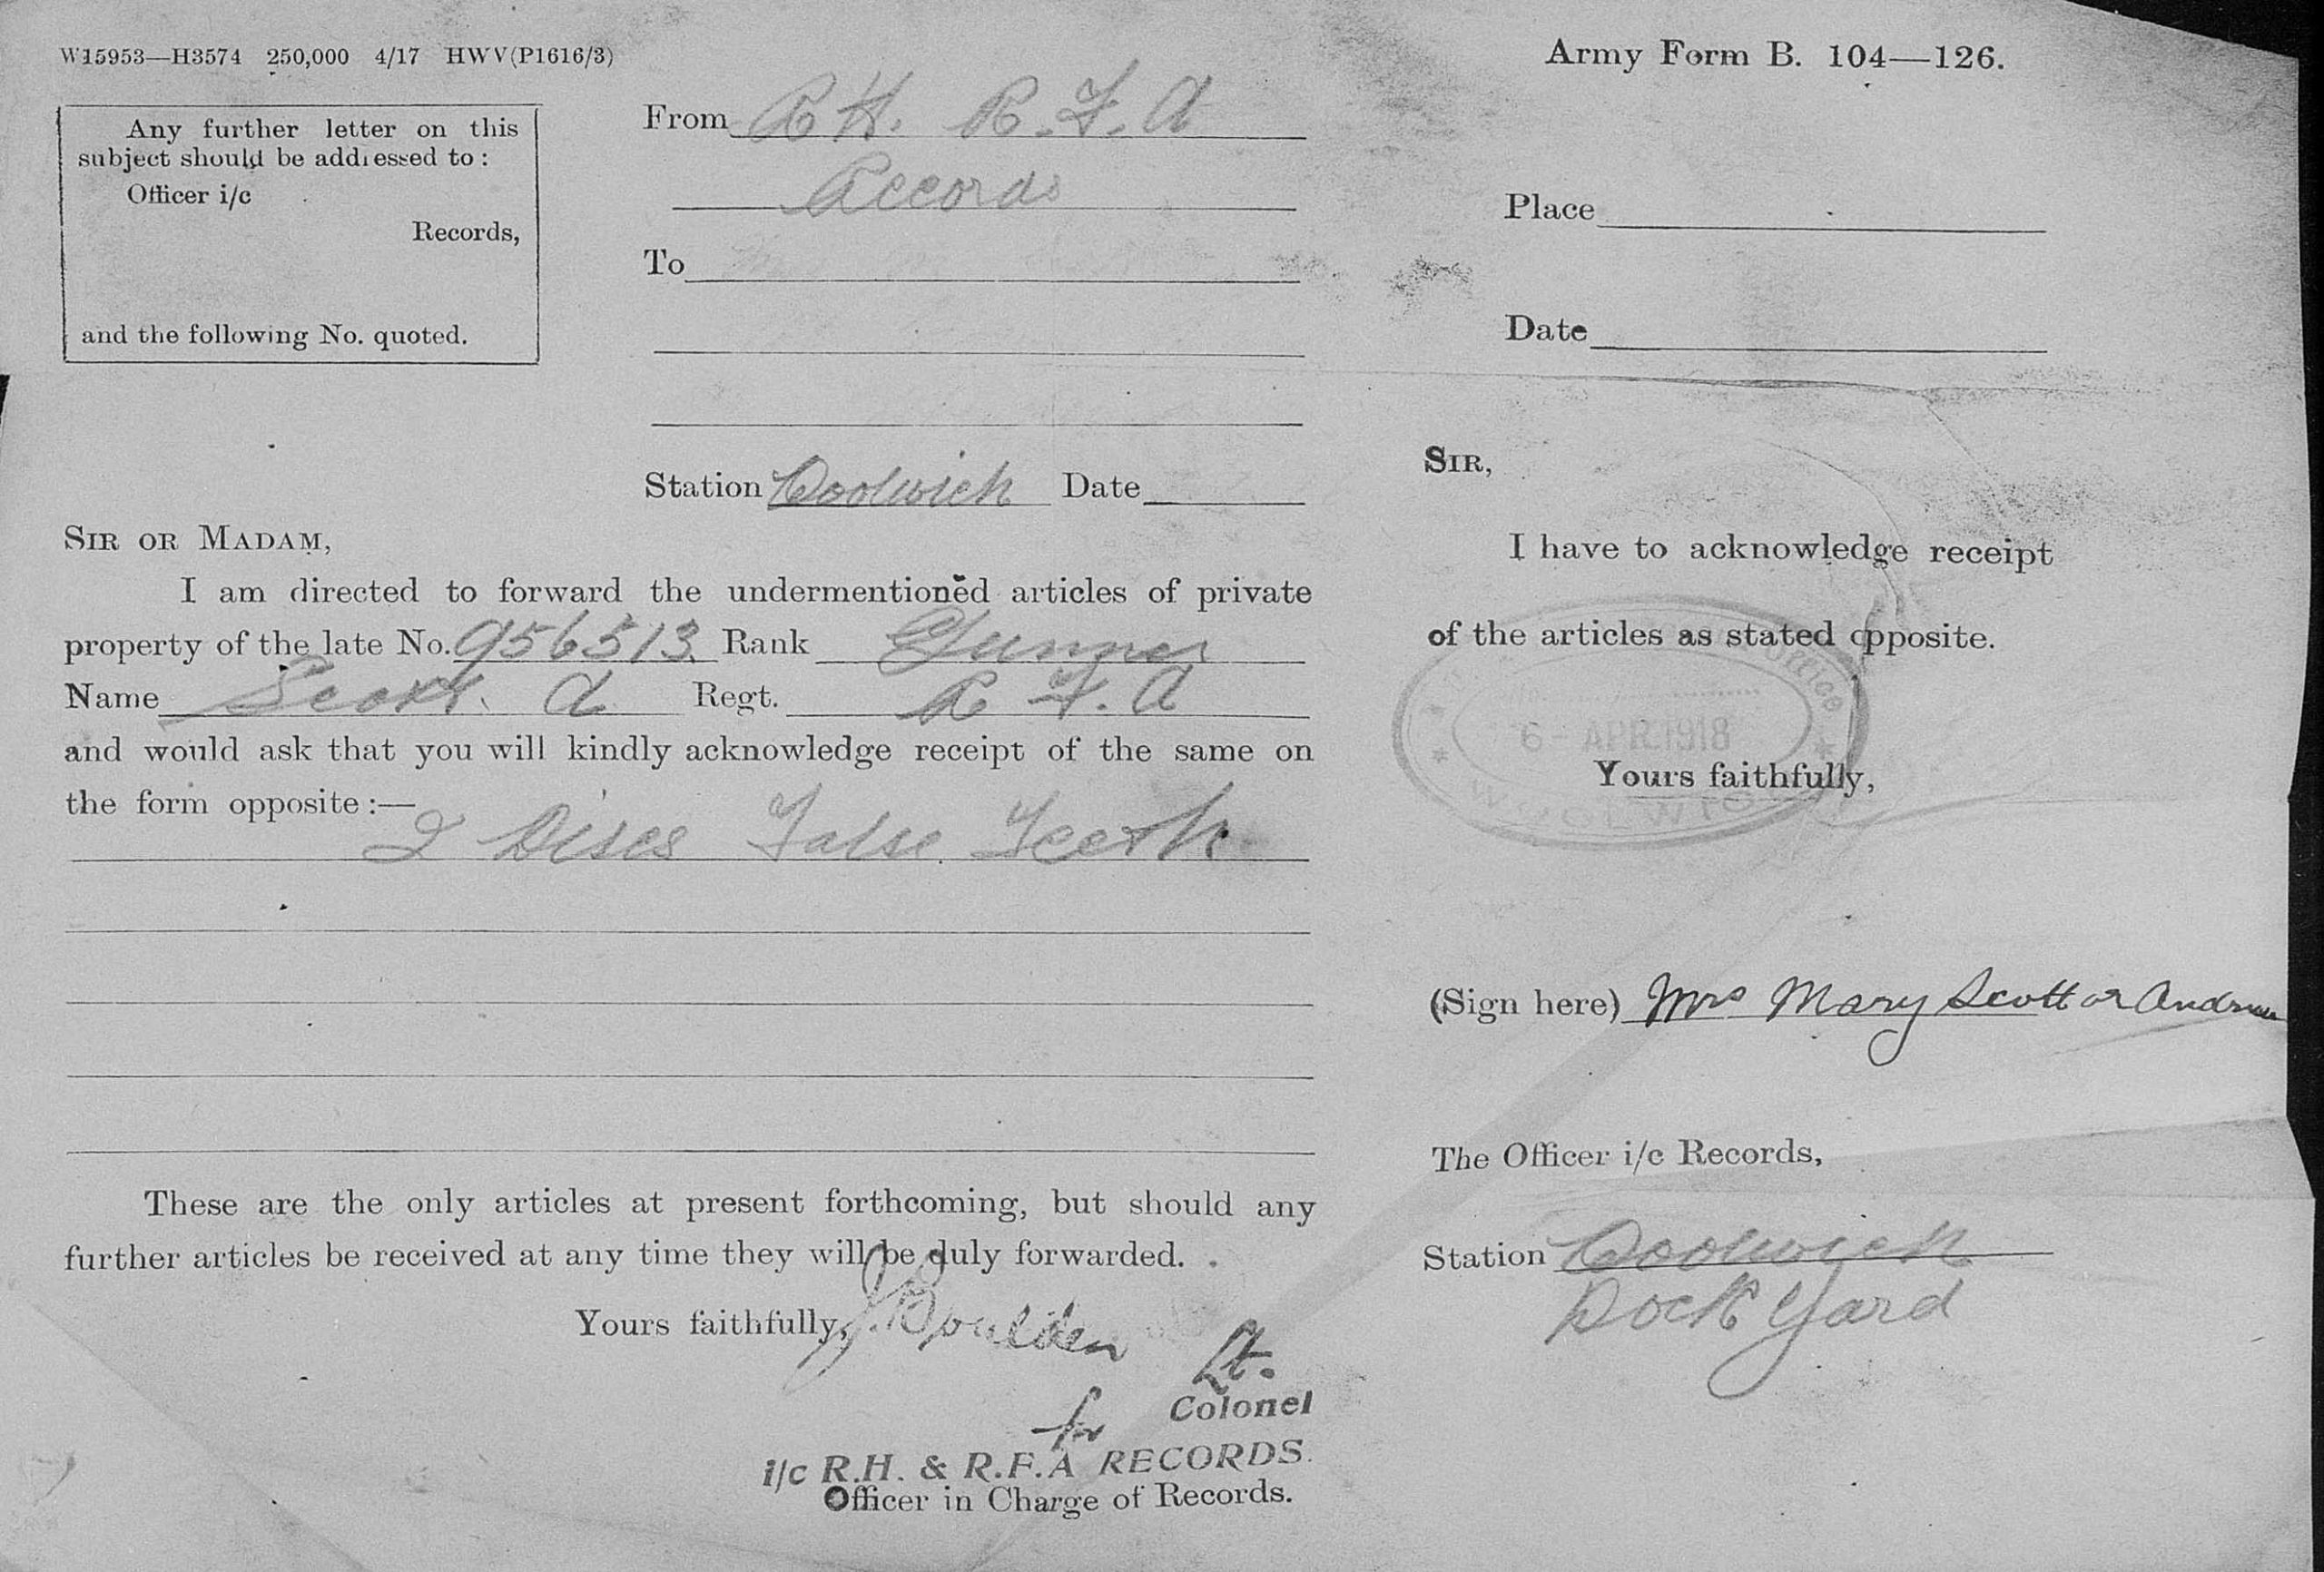 W15953—H3574 250,000 4/17 HWV(P1616/3)
Army Form B. 104—126.
Any further letter on this
subject should be addressed to :
Officer i/c
Records,
and the following No. quoted.
From R H. R. F. A
Records
To
Station Woolwich Date
SIR OR MADAM,
I am directed to forward the undermentioned articles of private
property of the late No. 956513. Rank Gunner
Name Scott. A Regt. R F. A
and would ask that you will kindly acknowledge receipt of the same on
the form opposite :—
2 Discs False Teeth
These are the only articles at present forthcoming, but should any
further articles be received at any time they will be duly forwarded.
Yours faithfully, J. Boulden
Lt.
for Colonel
i/c R.H. & R.F.A RECORDS.
Officer in Charge of Records.
Place
Date
SIR,
I have to acknowledge receipt
of the articles as stated opposite.
Office
6 - APR.1918
WOOLWIC
Yours faithfully,
(Sign here) Mrs Mary Scott or Andrew
The Officer i/c Records,
Station Woolwich
Dock Yard